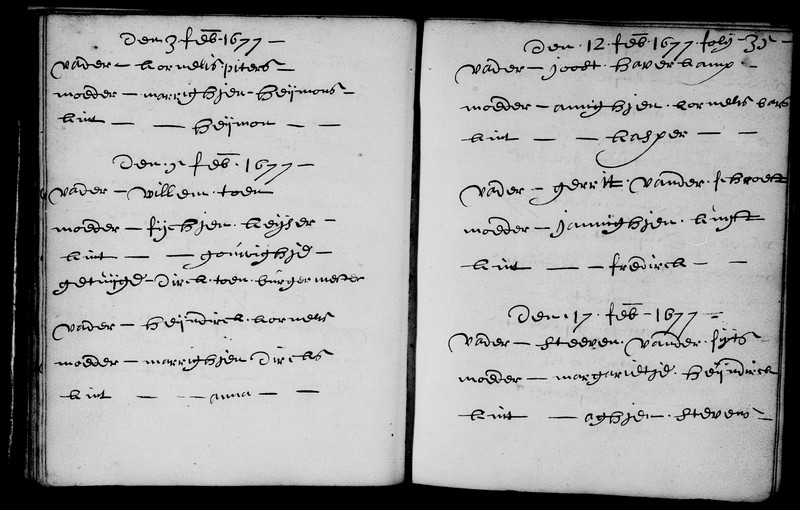 Den 3 feb 1677 —
vader — kornelis piters —
moeder — marrighjen heijmons —
kint — — heijmon — —
Den 7 feb 1677 —
vader — willem toen
moeder — fijchjen keijser —
kint — — gouwighje —
getuijge — dirck toen burgermeester
vader — heijndrick kornelis
moeder — marrighjen dircks
kint — — anna — —
Den 12 feb 1677 folij 35 —
vader — joost haverkamp —
moeder — annighjen kornelis
kint — — kasper — —
vader — gerrit vander
moeder — jannighjen
kint — — fredirck — —
Den 17 feb 1677 —
vader — steeven vander sijts
moeder — margarietje heijndirck
kint — aghjen stevens —